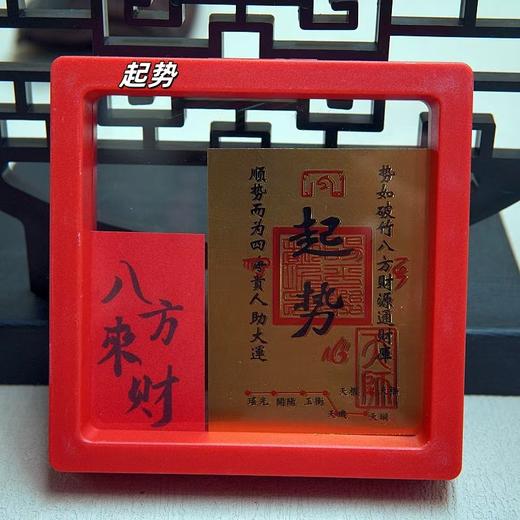 起势
势如破竹八方財源通財庫
起势
順势而为四海貴人助大運
八方來财
天師
瑤光 開陽 玉衡
天權
天璣 天璇